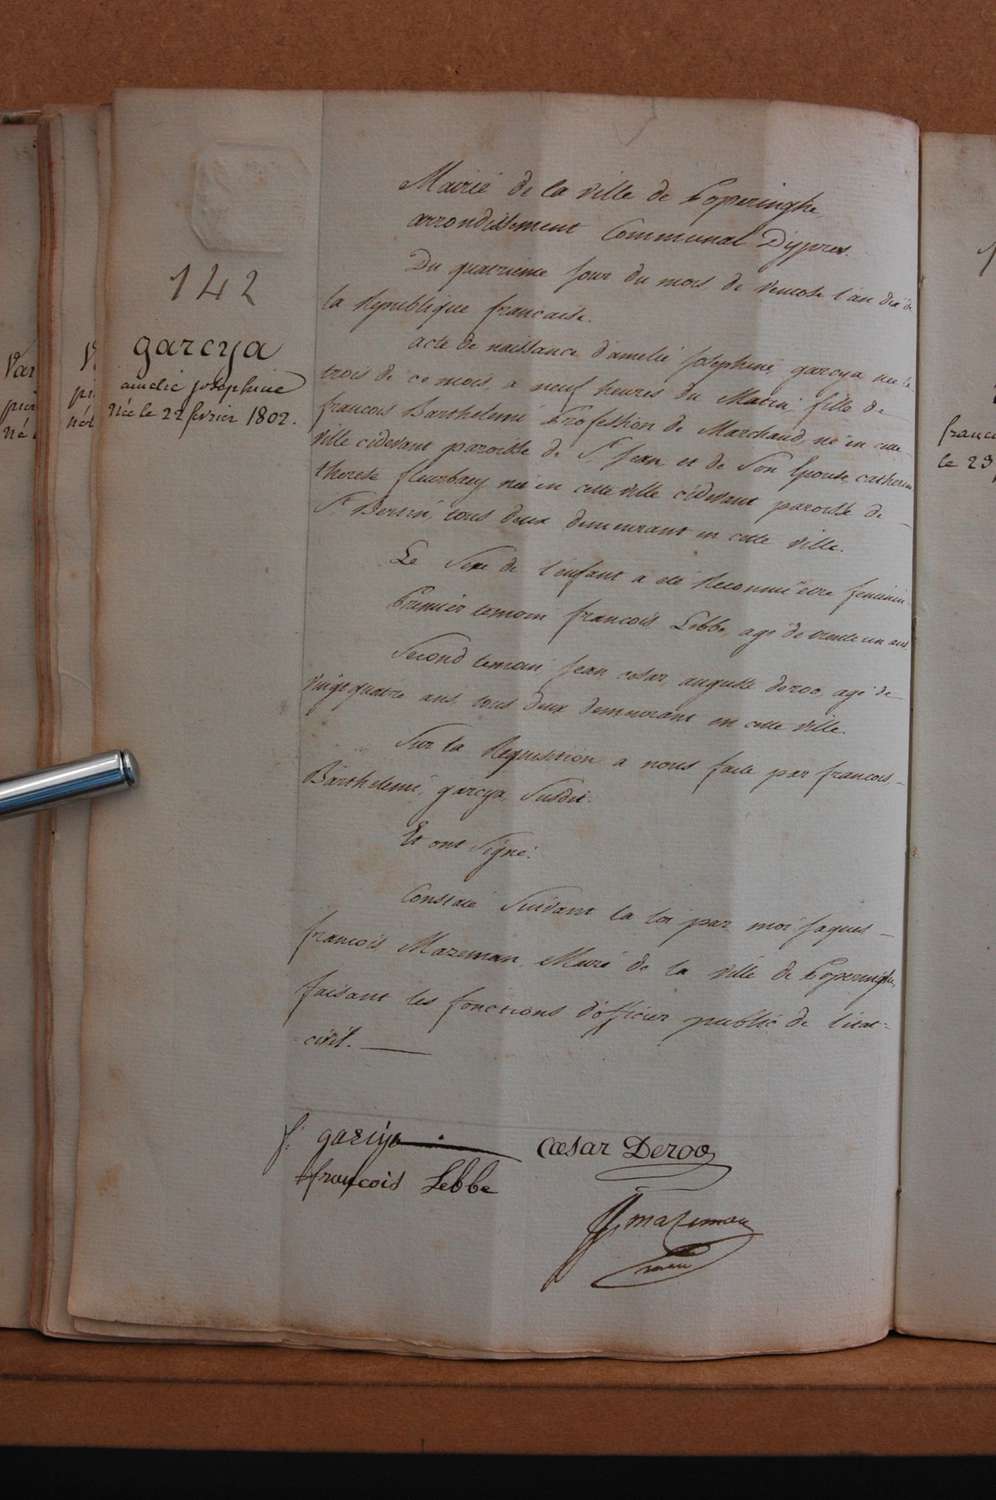 142
garcya
amelie josephine
Née le 22 fevrier 1802.
Mairie de la ville de Poperinghe
arrondissement Communal D'ypres.
Du quatrieme jour du mois de Ventose l'an dix de
la Republique francaise.
acte de naissance d'amelie josephine garcya née le
trois de ce mois, a neuf heures du Matin, fille de
francois Barthelemi Profession de Marchand, né en cette
ville cidevant paroisse de St Jean et de Son Epouse catherine
therese fleurbaey née en cette ville cidevant paroisse de
St Bertin, tous deux demeurant en cette ville.
Le Sexe de l'enfant a eté Reconnu être feminin
Premier temoin francois Lebbe agé de trente un ans
Second temoin jean cesar auguste deroo, agé de
vingt quatre ans, tous deux demeurant en cette ville.
Sur la Requisition a nous faite par francois
Barthelemi garcya Susdit.
Et ont signé.
Constaté Suivant la loi par moi jaques
francois Mazeman Maire de la ville de Poperinghe,
faisant les fonctions d'officier public de l'etat
civil.
f. garcya
Cæsar Deroo
francois Lebbe
JF mazeman
maire
Var
pi
né
V
pi
né
franco
le 23